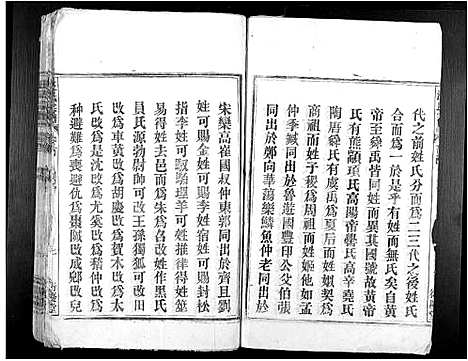 代之前姓氏分而爲二三代之後姓氏
合而爲一於是乎有姓而無氏矣自黃
帝至舜禹皆同姓而異其國號故黃帝
氏有熊顓頊氏高陽帝嚳氏高辛堯氏
陶唐舜氏有虞禹爲夏后而姓姒契爲
商祖而姓子稷爲周祖而姓姬他如孟
仲季臧同出於魯遊國豐印公父伯張
同出於鄭向華蕩樂鱗魚仲老同出於
宋欒高崔國叔仲東郭同出於齊且劉
姓可賜金姓可賜李姓宿姓可賜封松
指李姓可馭駱理羊可姓推律得姓可
易得姓如去邑而爲朱爲召改姓作黑氏
員氏源勃尉可改王孫獨狐可改
改爲車黃改爲胡慶改爲賀木改爲太
氏改爲是沈改爲尤奚改爲稽仲改爲
种避難爲喪避仇爲棗陳改成鄒改兒